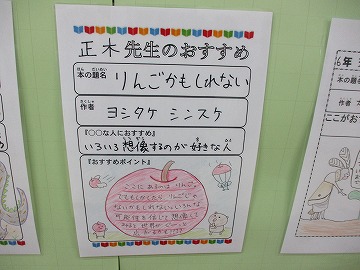 正木先生のおすすめ
ほん だいめい
本の題名
りんごかもしれない
さくしゃ
作者
ヨシタケ シンスケ
『○○な人におすすめ』
いろいろ想像するのが好きな人
『おすすめポイント』
ここにあるのは りんご。
でももしかしたら、りんごじゃ
ないかもしれない。いろいろな
可能性を信じて 想像して
みると 世界が
6年